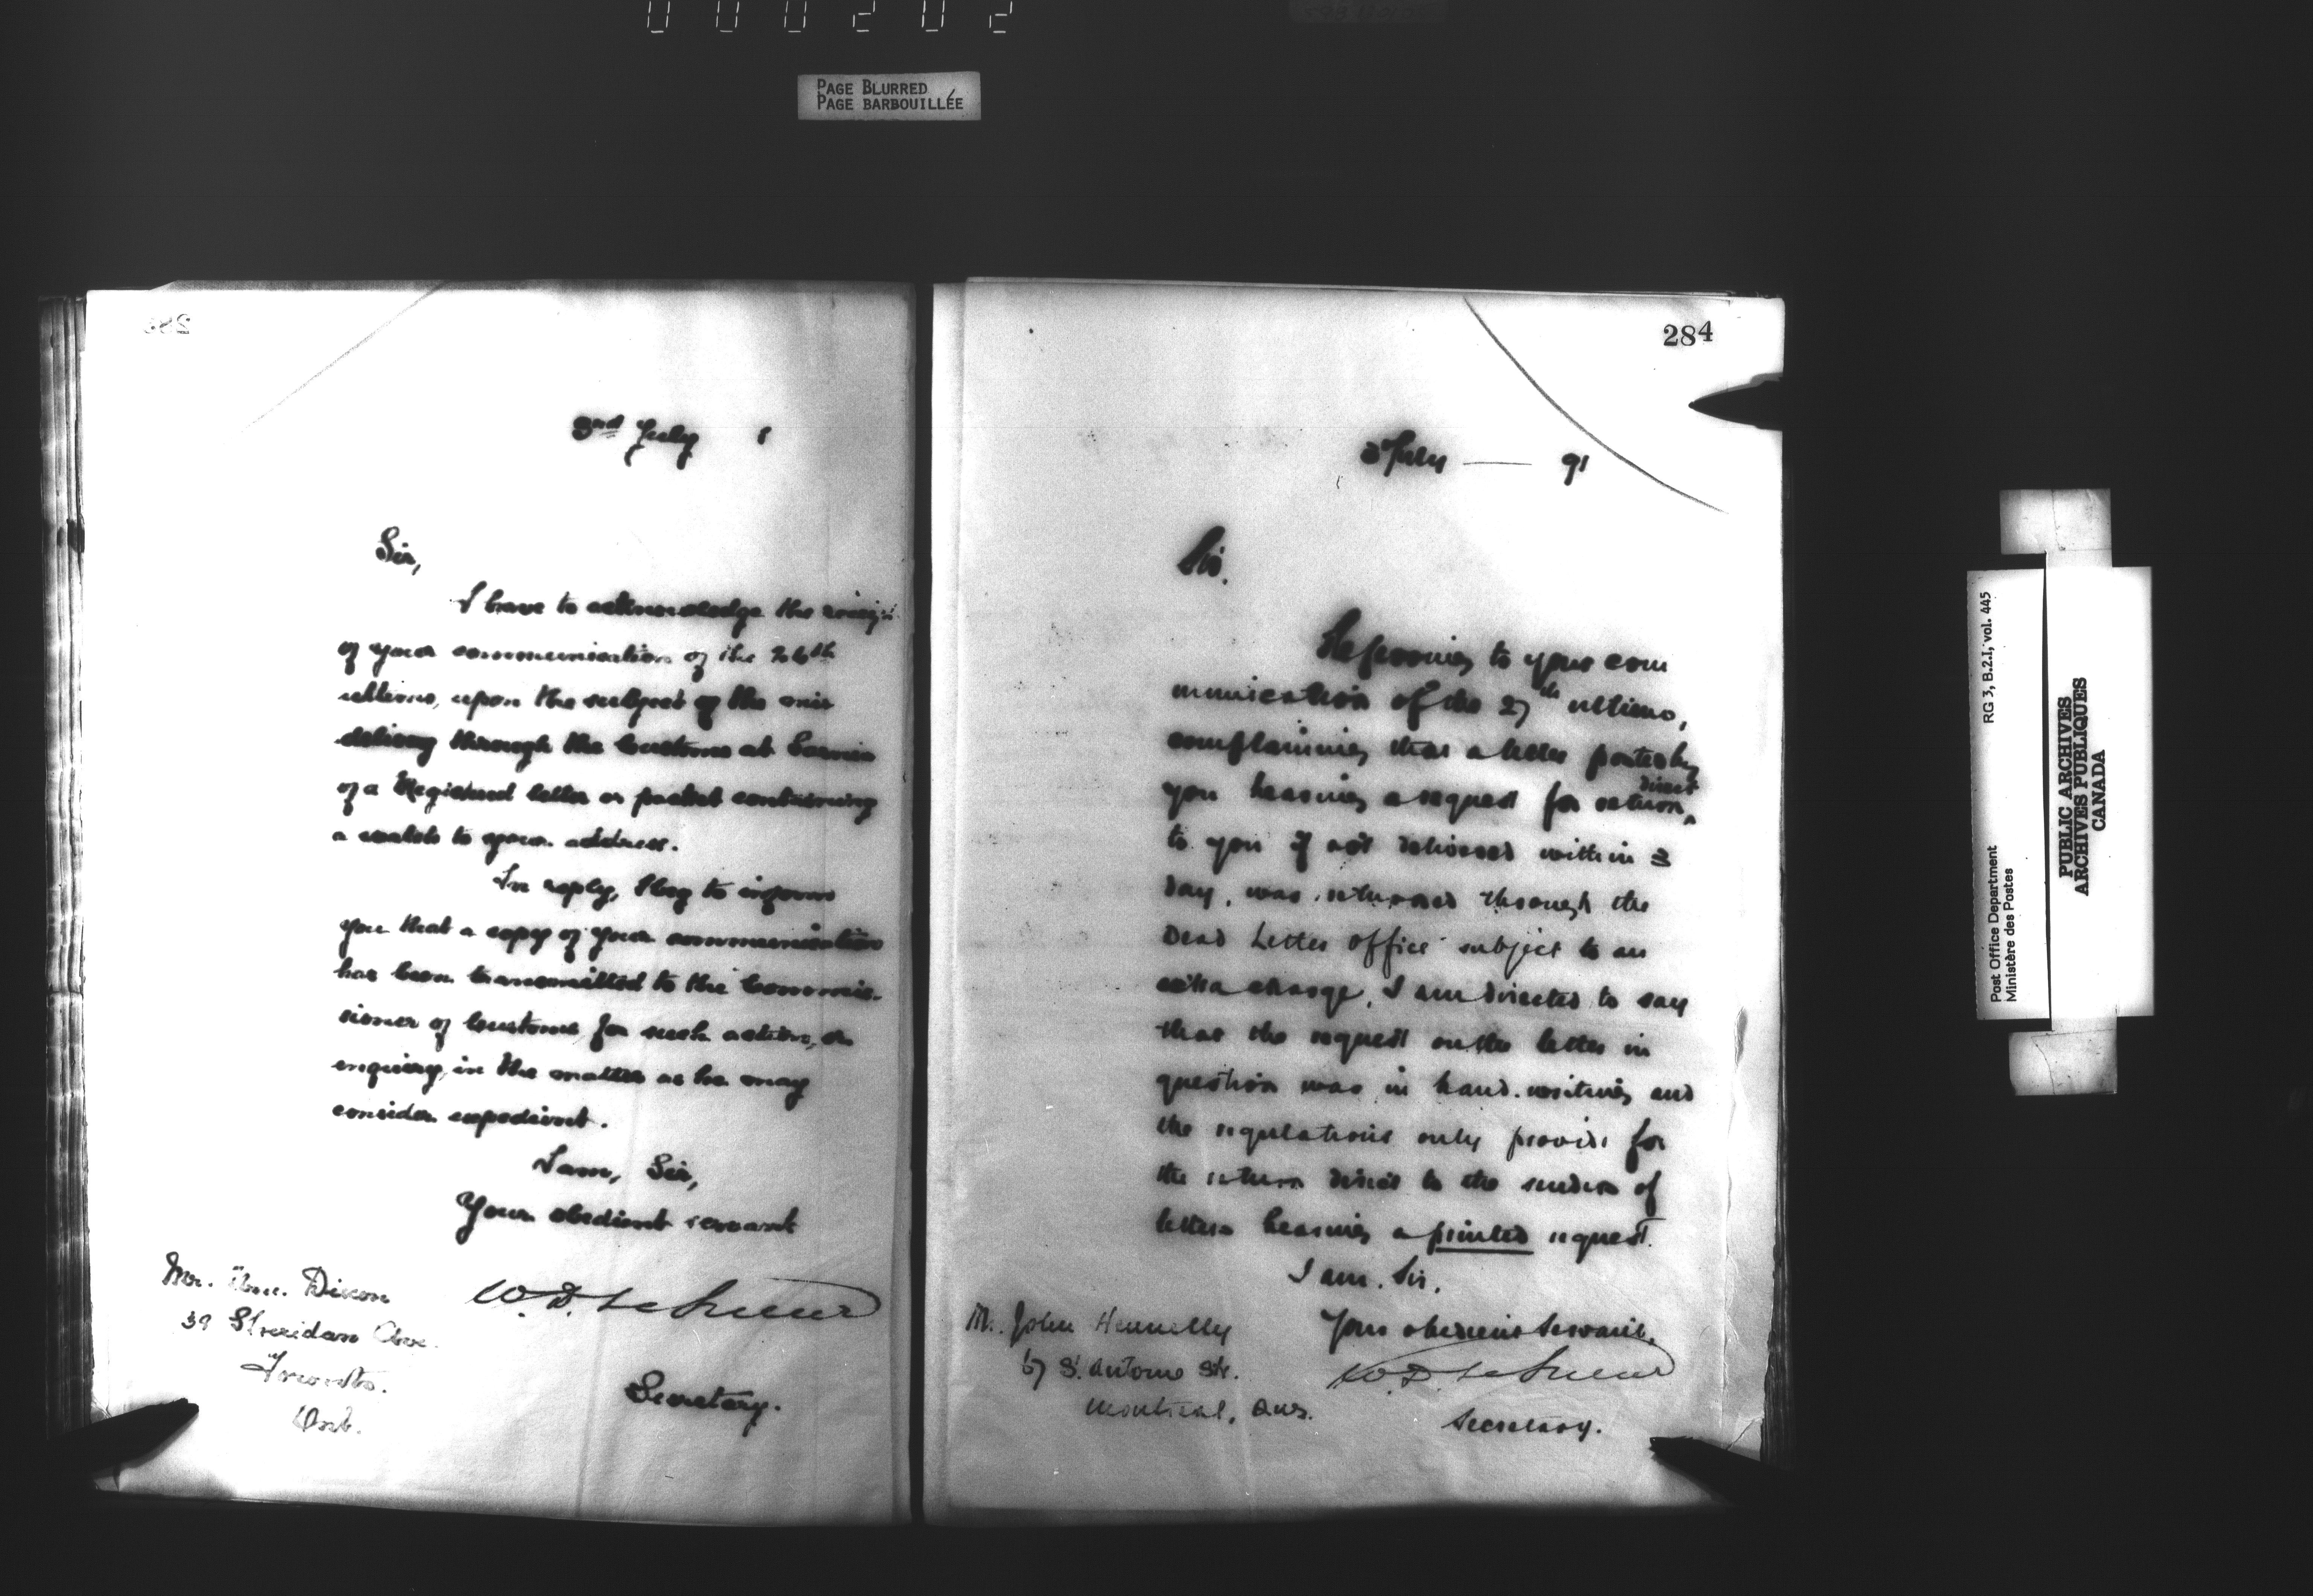 000202
PAGE BLURRED
PAGE BARBOUILLÉE
3rd July 1
Sir,
I have to acknowledge the receipt
of your communication of the 26th
ultimo, upon the subject of the mis
delivery through the Customs at Sarnia
of a Registered letter or packet containing
a watch to your address.
In reply, I beg to inform
you that a copy of your communication
has been transmitted to the Commis-
sioner of Customs for such action, or
enquiry, in the matter as he may
consider expedient.
I am, Sir,
Your obedient servant
W. D. LeSueur
Secretary.
Mr. Dixon
39 Sheridan Ave.
Toronto.
Ont.
284
3 July — 91
Sir.
Referring to your com
munication of the 27th ultimo,
complaining that a letter posted by
you bearing a request for return direct
to you if not delivered within 3
day, was returned through the
Dead Letter Office subject to an
extra charge, I am directed to say
that the request on the letter in
question was in hand-writing and
the regulations only provide for
the return direct to the senders of
letters bearing a printed request.
I am. Sir.
Your obedient Servant,
W. D. LeSueur
Secretary.
M. John Hennelly
67 St. Antoine Str.
Montreal, Que.
Post Office Department
Ministère des Postes
RG 3, B.2.I, vol. 445
PUBLIC ARCHIVES
ARCHIVES PUBLIQUES
CANADA